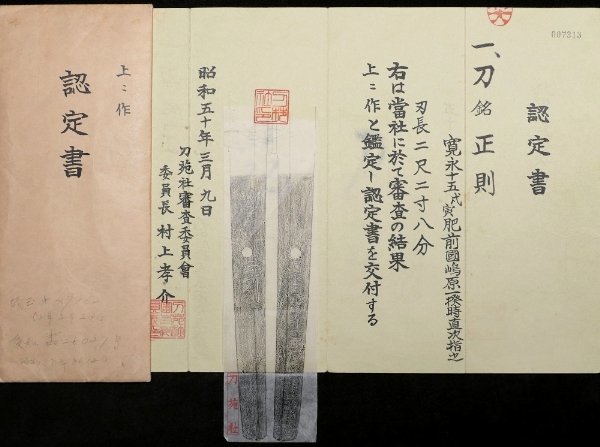 007313
認定書
一、刀 銘 正則
寛永十五戊寅肥前國嶋原一揆時直次指之
刃長二尺二寸八分
右は當社に於て審査の結果
上々作と鑑定し認定書を交付する
昭和五十年三月九日
刀苑社審査委員會
委員長 村上孝介
刀苑社
上々作
認定書